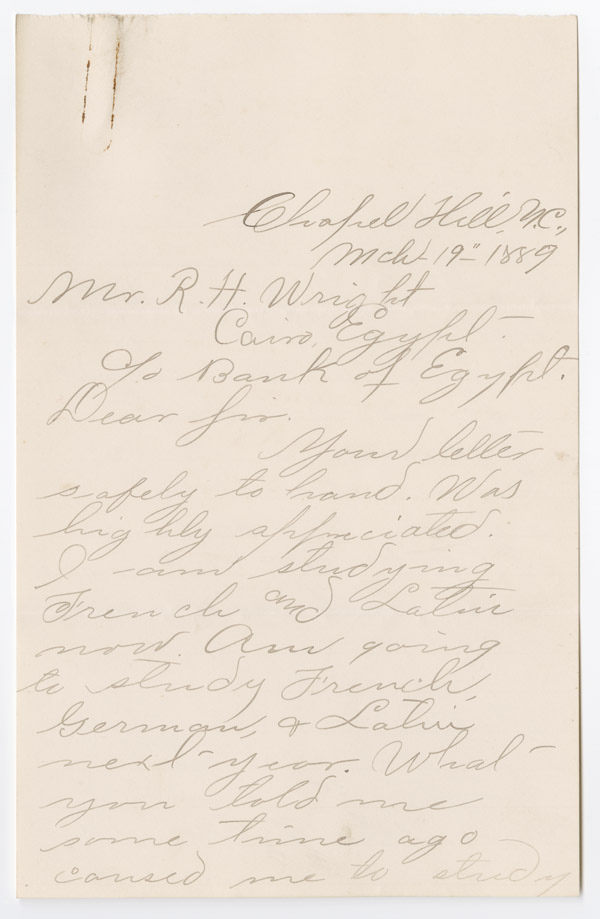 Chapel Hill, N.C.,
Mch 19" 1889
Mr. R. H. Wright
Cairo, Egypt -
℅ Bank of Egypt.
Dear Sir.
Your letter
safely to hand. Was
highly appreciated.
I am studying
French and Latin
now. Am going
to study French,
German, & Latin
next year. What
you told me
some time ago
caused me to study